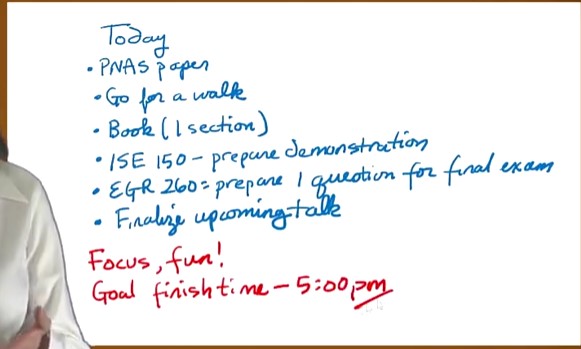 Today
• PNAS paper
• Go for a walk
• Book (1 section)
• ISE 150 - prepare demonstration
• EGR 260 = prepare 1 question for final exam
• Finalize upcoming talk
Focus, fun!
Goal finish time - 5:00pm